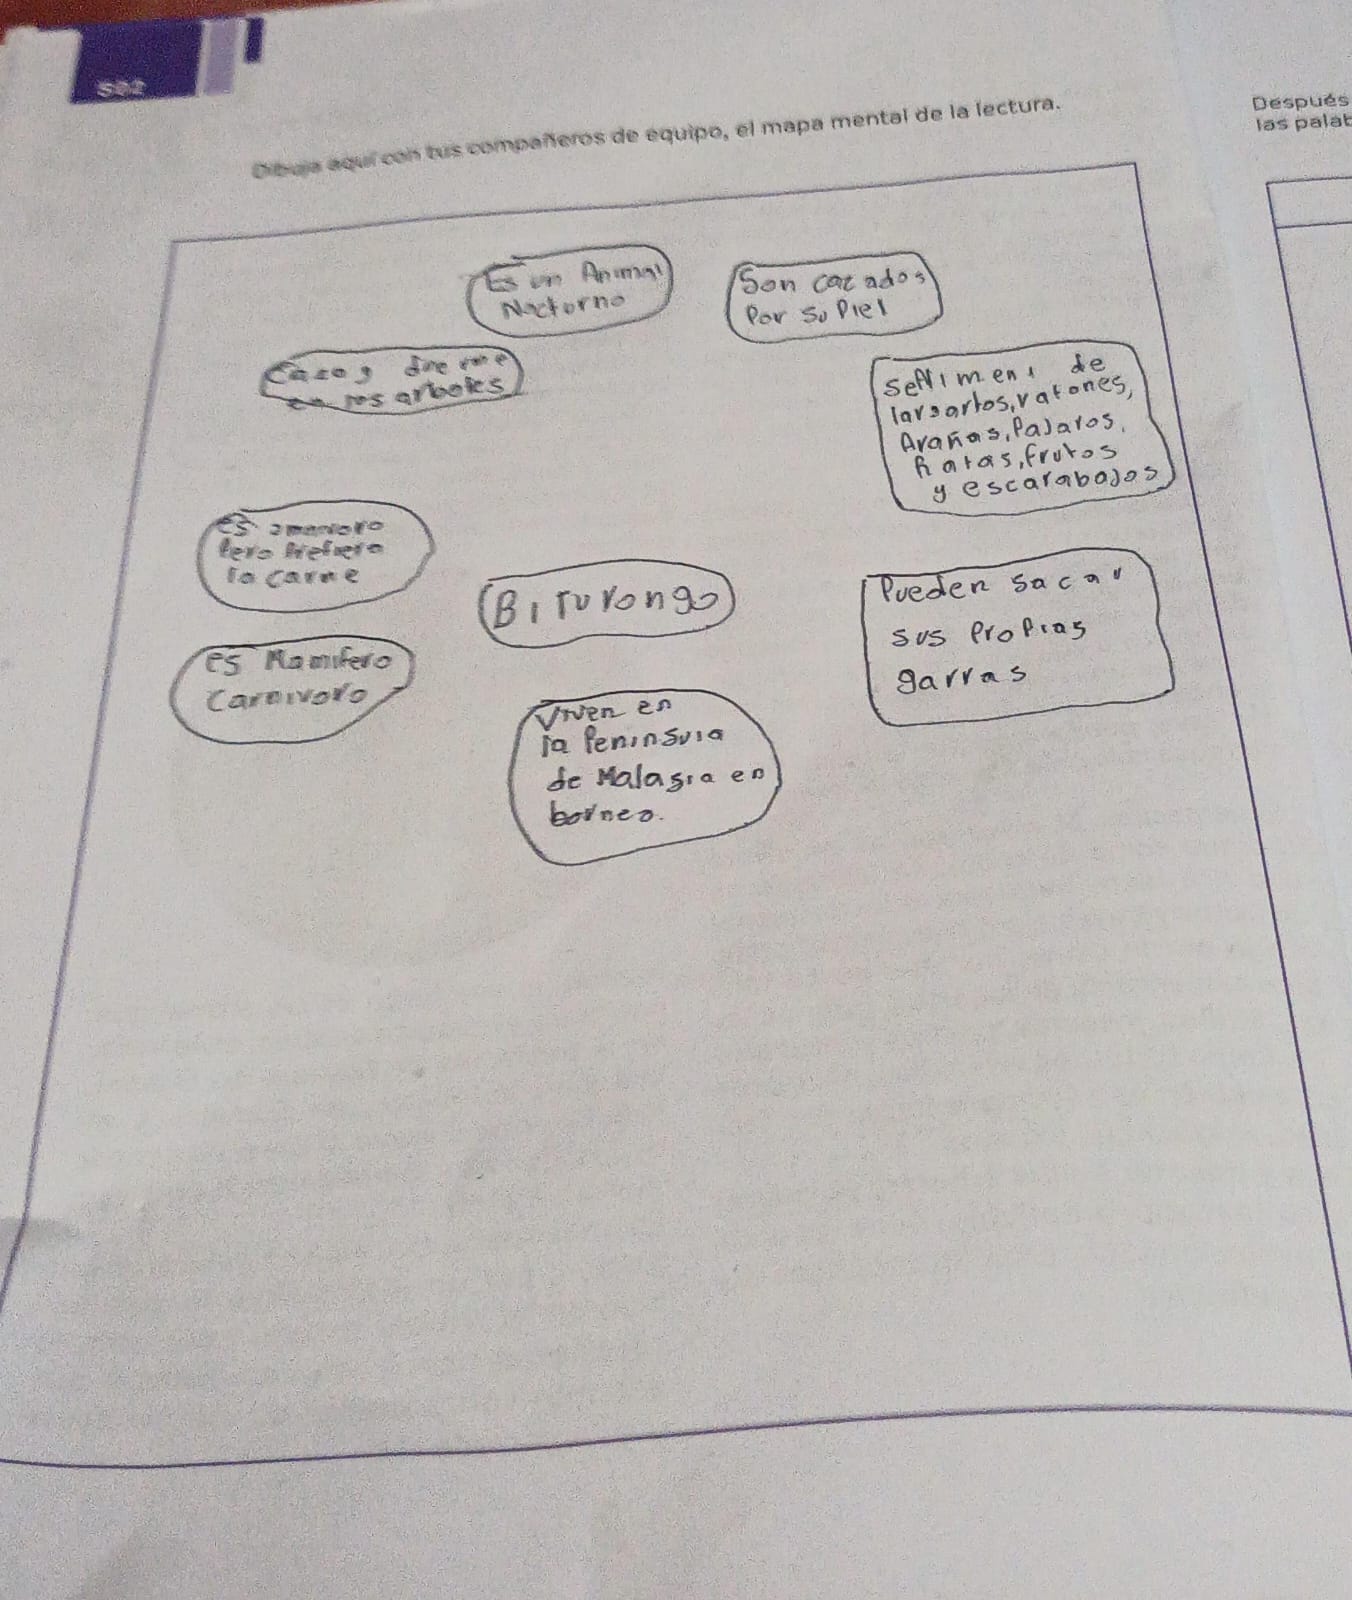 S02
Dibuja aquí con tus compañeros de equipo, el mapa mental de la lectura.
Después
las palab
Es un Animal
Nocturno
Son cazados
Por su Piel
Caza y duerme
en los arboles
de
largartos, ratones,
Arañas, Pajaros,
Ratas, frutos
y escarabajos
es
Pero Prefiere
la carne
Biturongo
Pueden sacar
sus Propias
garras
es Mamifero
Carnivoro
Viven en
la Peninsula
de Malasia en
borneo.